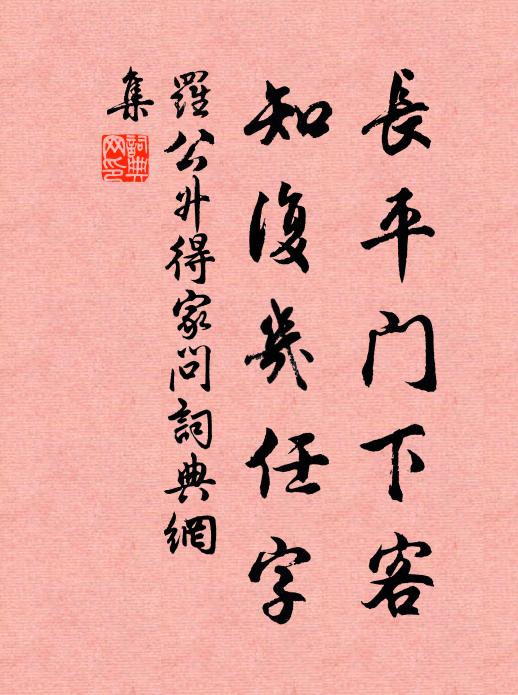 長平门下客
知復幾任字
羅公升得家問詞典網
集
詞典
网印